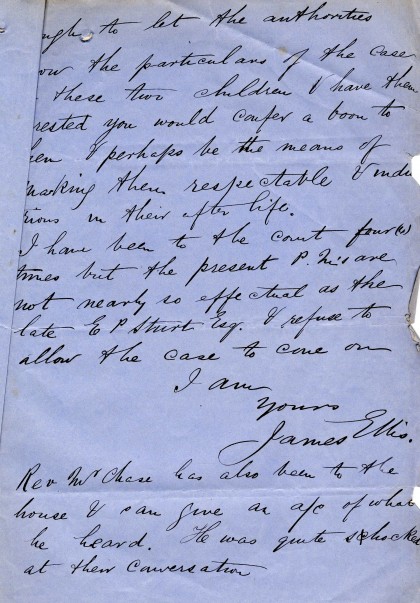 ugh to let the authorities
ow the particulars of the case
these two children & have them
rested you would confer a boon to
em & perhaps be the means of
making them respectable & indus
rious in their after life.
I have been to the court four (4)
times but the present P. M's are
not nearly so effectual as the
late E P Sturt Esq. & refuse to
allow the case to come on
I am
Yours
James Ellis.
Rev Mr Chase has also been to the
house & can give an a/c of what
he heard. He was quite schocked
at their conversation